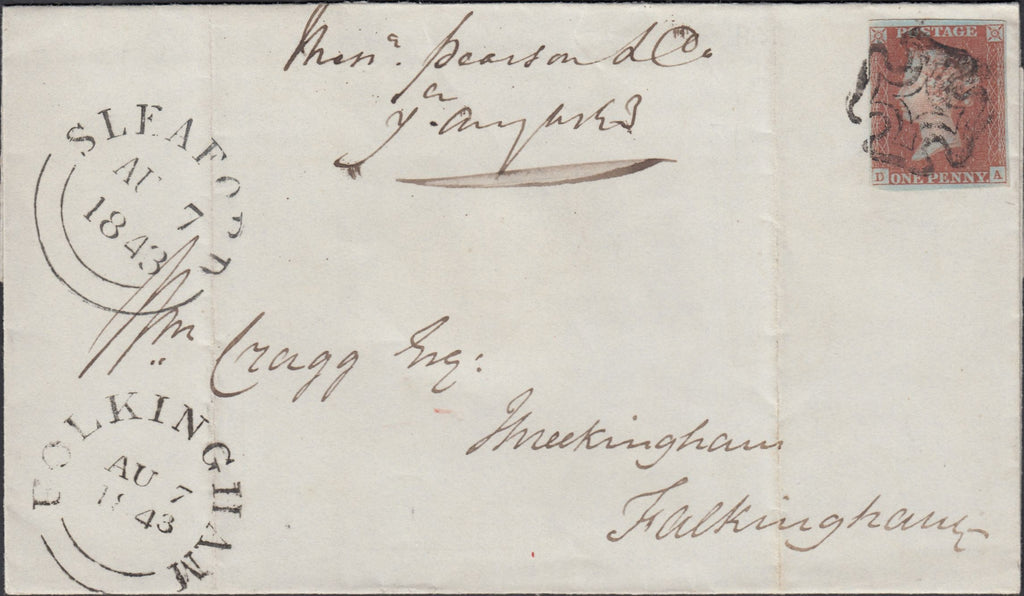 Messrs. Pearson & Co.
7th August 43
POSTAGE
D ONE PENNY A
SLEAFORD
AU 7
1843
Wm Cragg Esq:
Threekingham
Falkingham
FOLKINGHAM
AU 7
1843